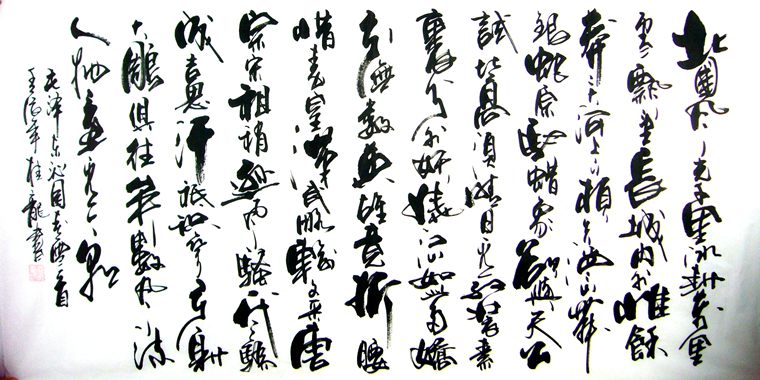 北國风光千里冰封万里
雪飘望長城内外惟餘
莽莽大河上下頓失滔滔山舞
銀蛇原馳蜡象欲與天公
試比高須晴日看红装素
裹分外妖娆江山如此多嬌
引無數英雄竞折腰
惜秦皇漢武略輸文采唐
宗宋祖稍逊风騷一代天驕
成吉思汗祇识弯弓射
大雕俱往矣數风流
人物還看今朝
毛泽东沁园春雪一首
年桂龍書